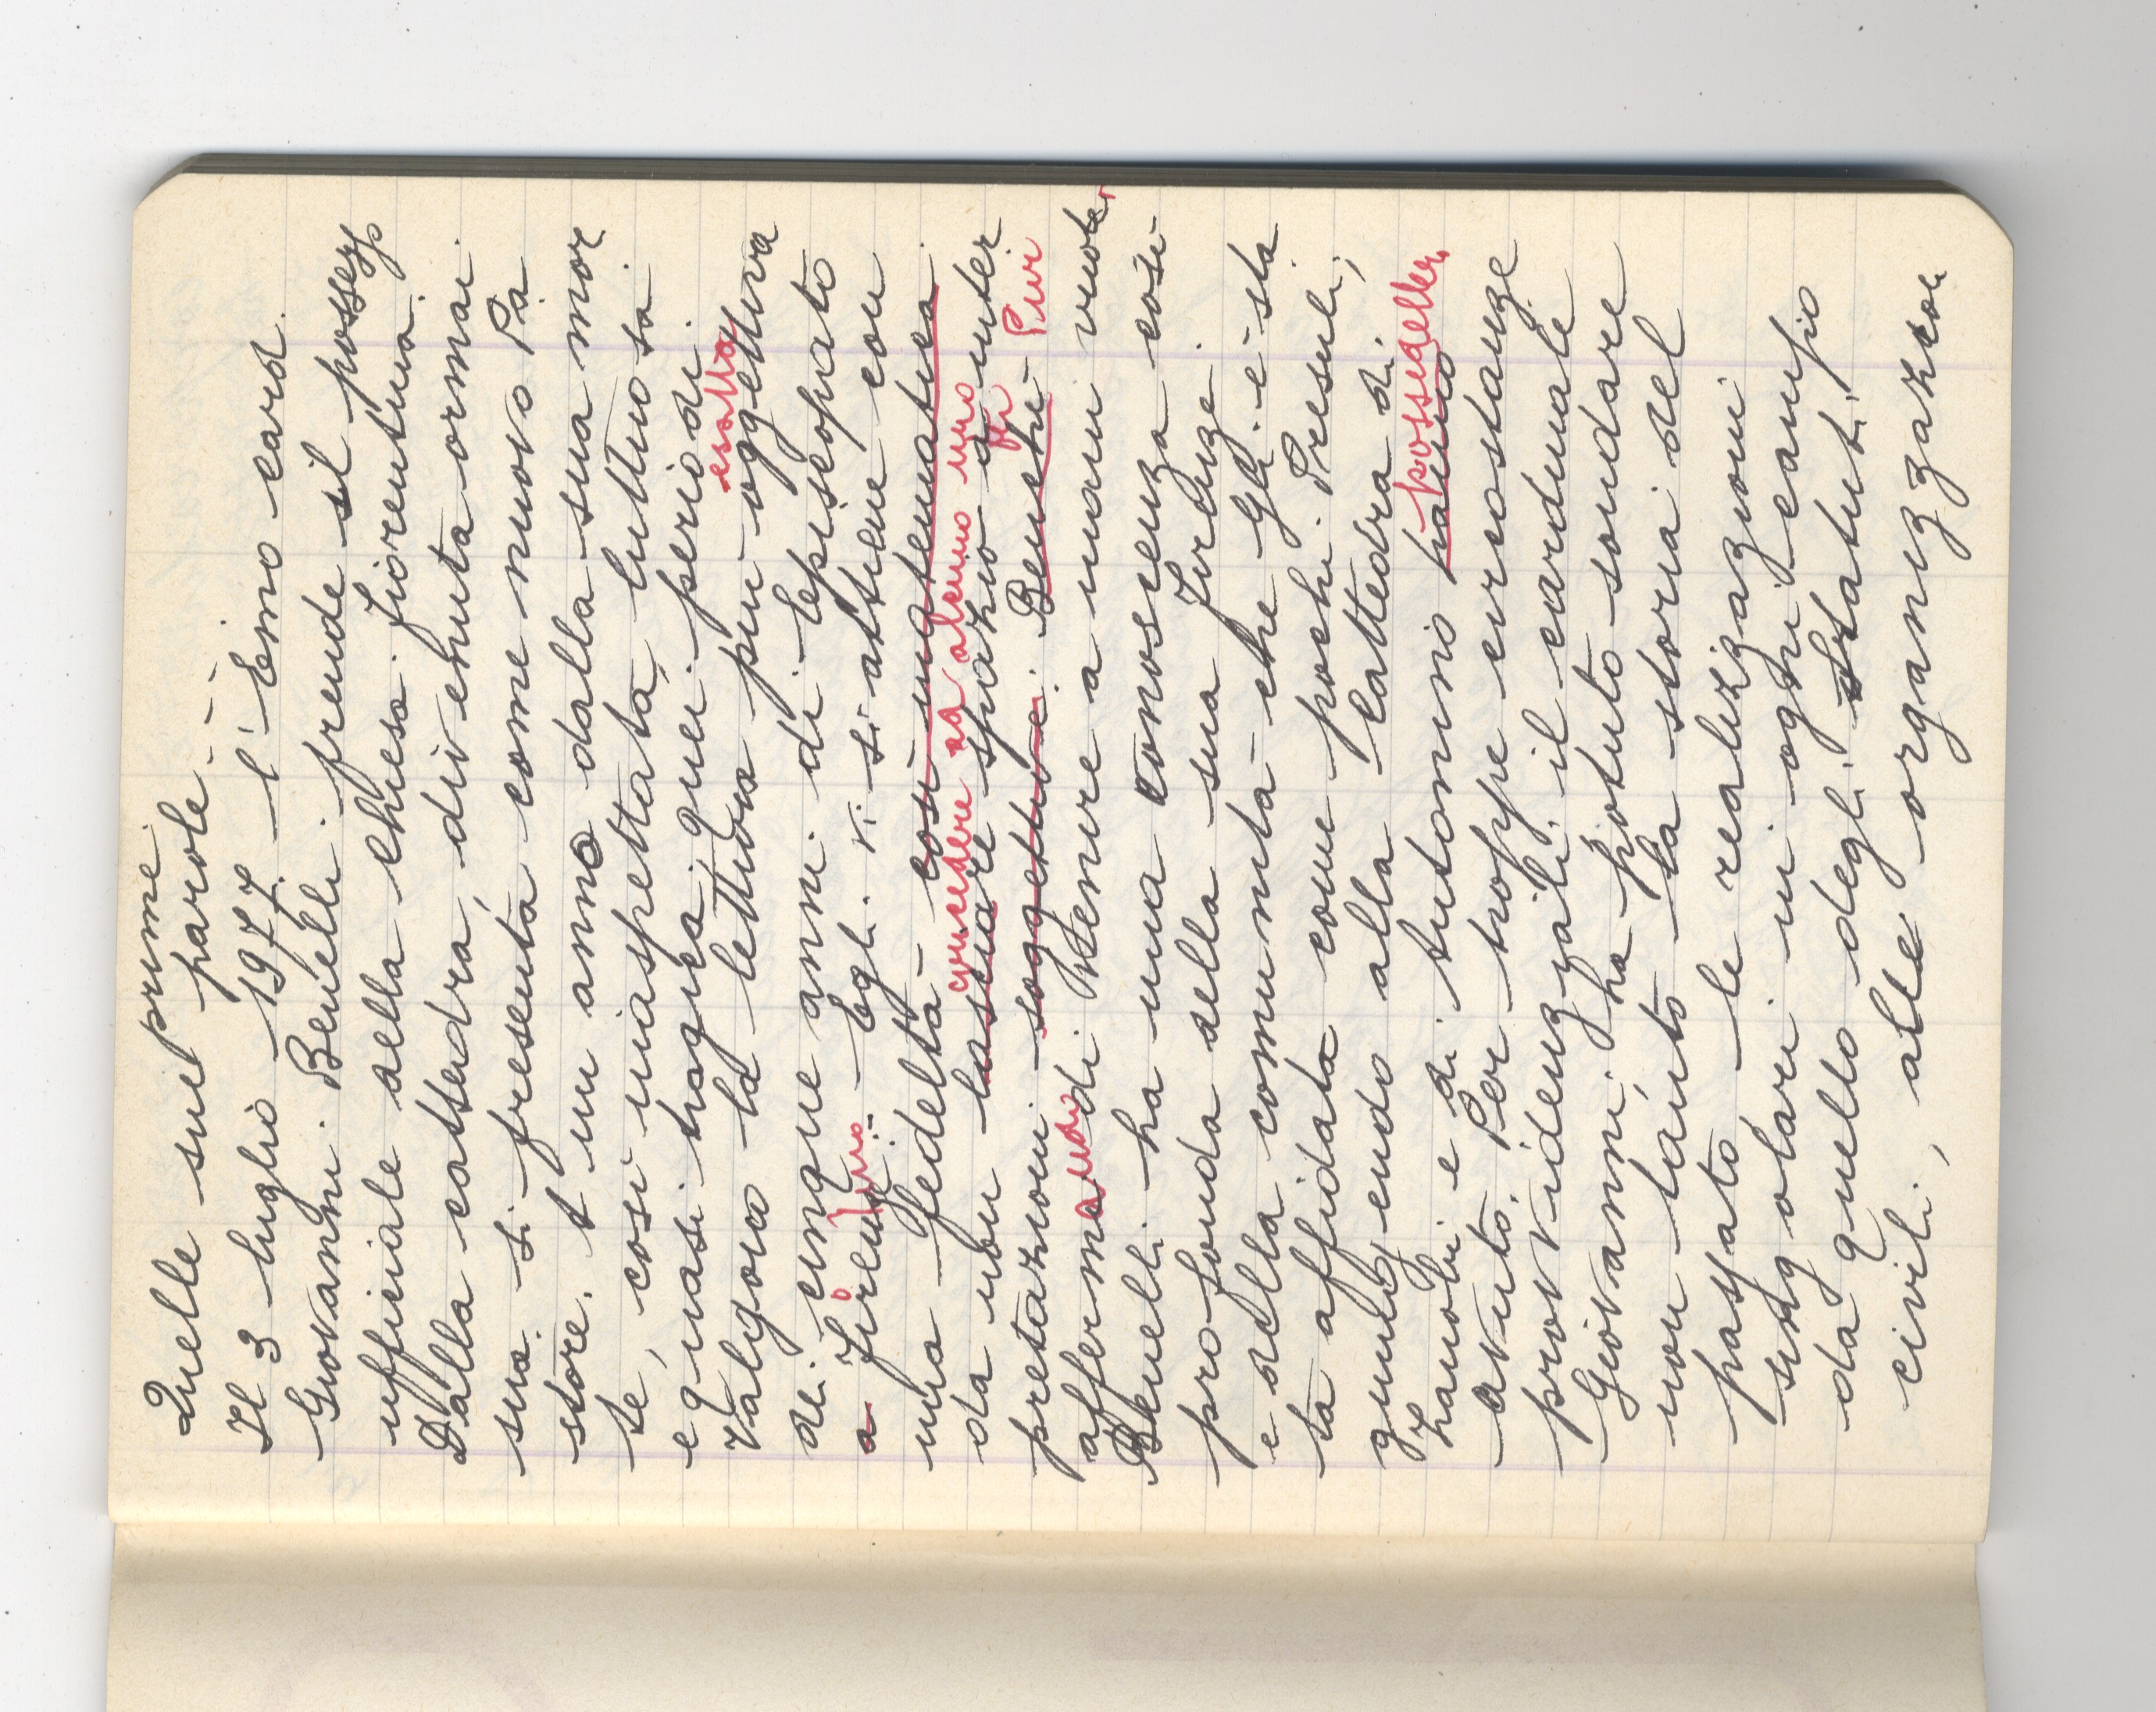 Quelle sue prime
parole...
Il 3 luglio 1977 l'Emo card.
Giovanni Benelli prende il possesso
ufficiale della chiesa fiorentina.
Dalla cattedra, divenuta ormai
sua si presenta come nuovo Pa
store. E un anno dalla sua mor
te, così inaspettata, luttuosa
e quasi tragica, quei periodi
valgono la lettura più oggettiva
esatta
di cinque anni di episcopato
a Firenze. Egli vi si attiene con
una fedeltà così matematica
concedere ad alcuno uno
da non lasciare spazio di inter
pretazioni soggettive. Benché Pur
affermando di venire a mani vuote,
Benelli ha una conoscenza così
profonda della sua Firenze
e della comunità che gli è sta
ta affidata come pochi Presuli,
giungendo alla cattedra di
possedette
Zanobi e di Antonino hanno
avuto. Per troppe circostanze
provvidenziali, il cardinale
Giovanni, ha potuto sondare
non tanto la storia del
passato le realizzazioni
singolari in ogni campo
da quello degli statuti
civili, alle organizzazion